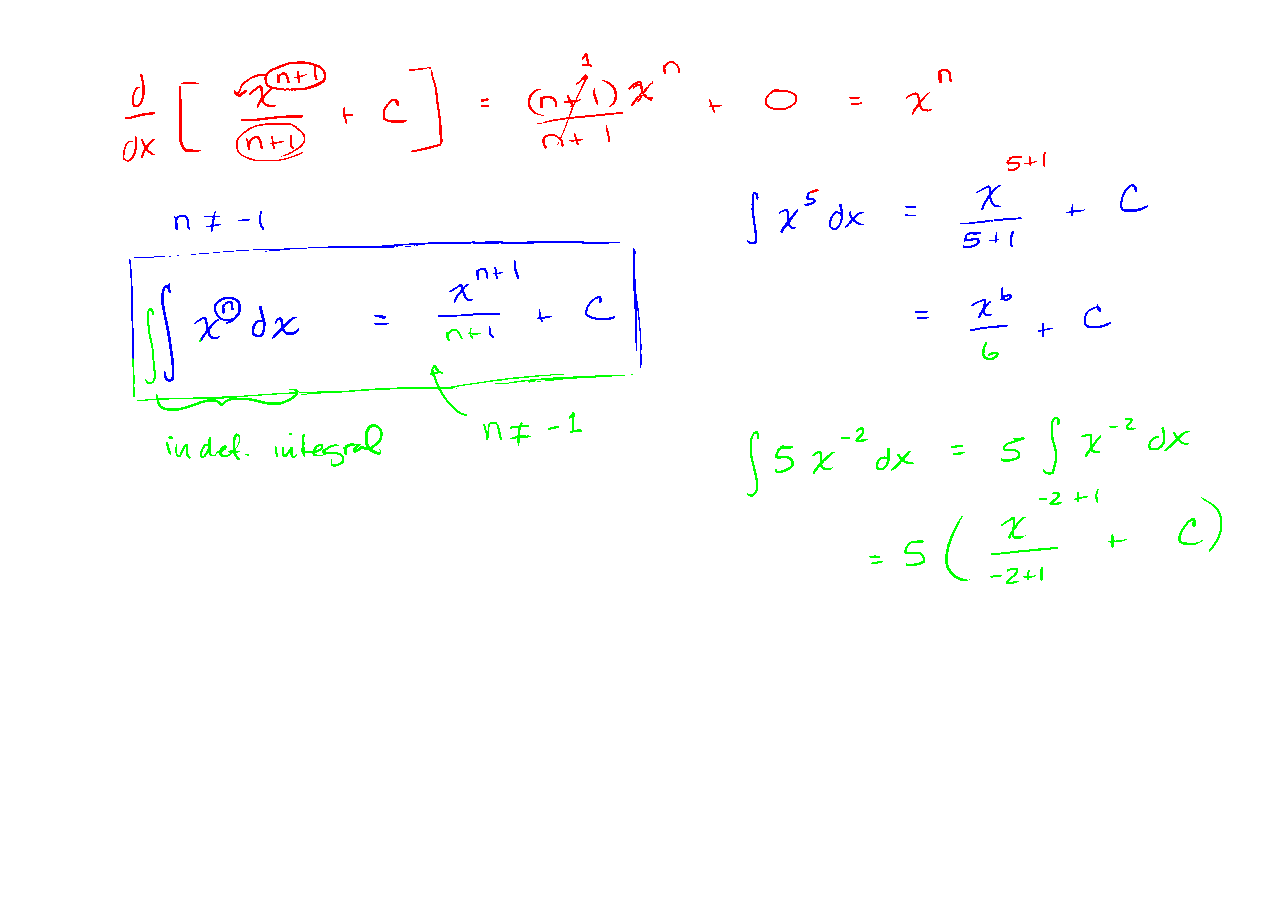 d/dx [ x^(n+1)/(n+1) + C ] = (n+1)x^n/(n+1) 1 + 0 = x^n
n ≠ -1
∫∫ x^n dx = x^(n+1)/(n+1) + C
indef. integral
n ≠ -1
∫ x^5 dx = x^(5+1)/(5+1) + C
= x^6/6 + C
∫ 5 x^-2 dx = 5 ∫ x^-2 dx
= 5 ( x^(-2+1)/(-2+1) + C )